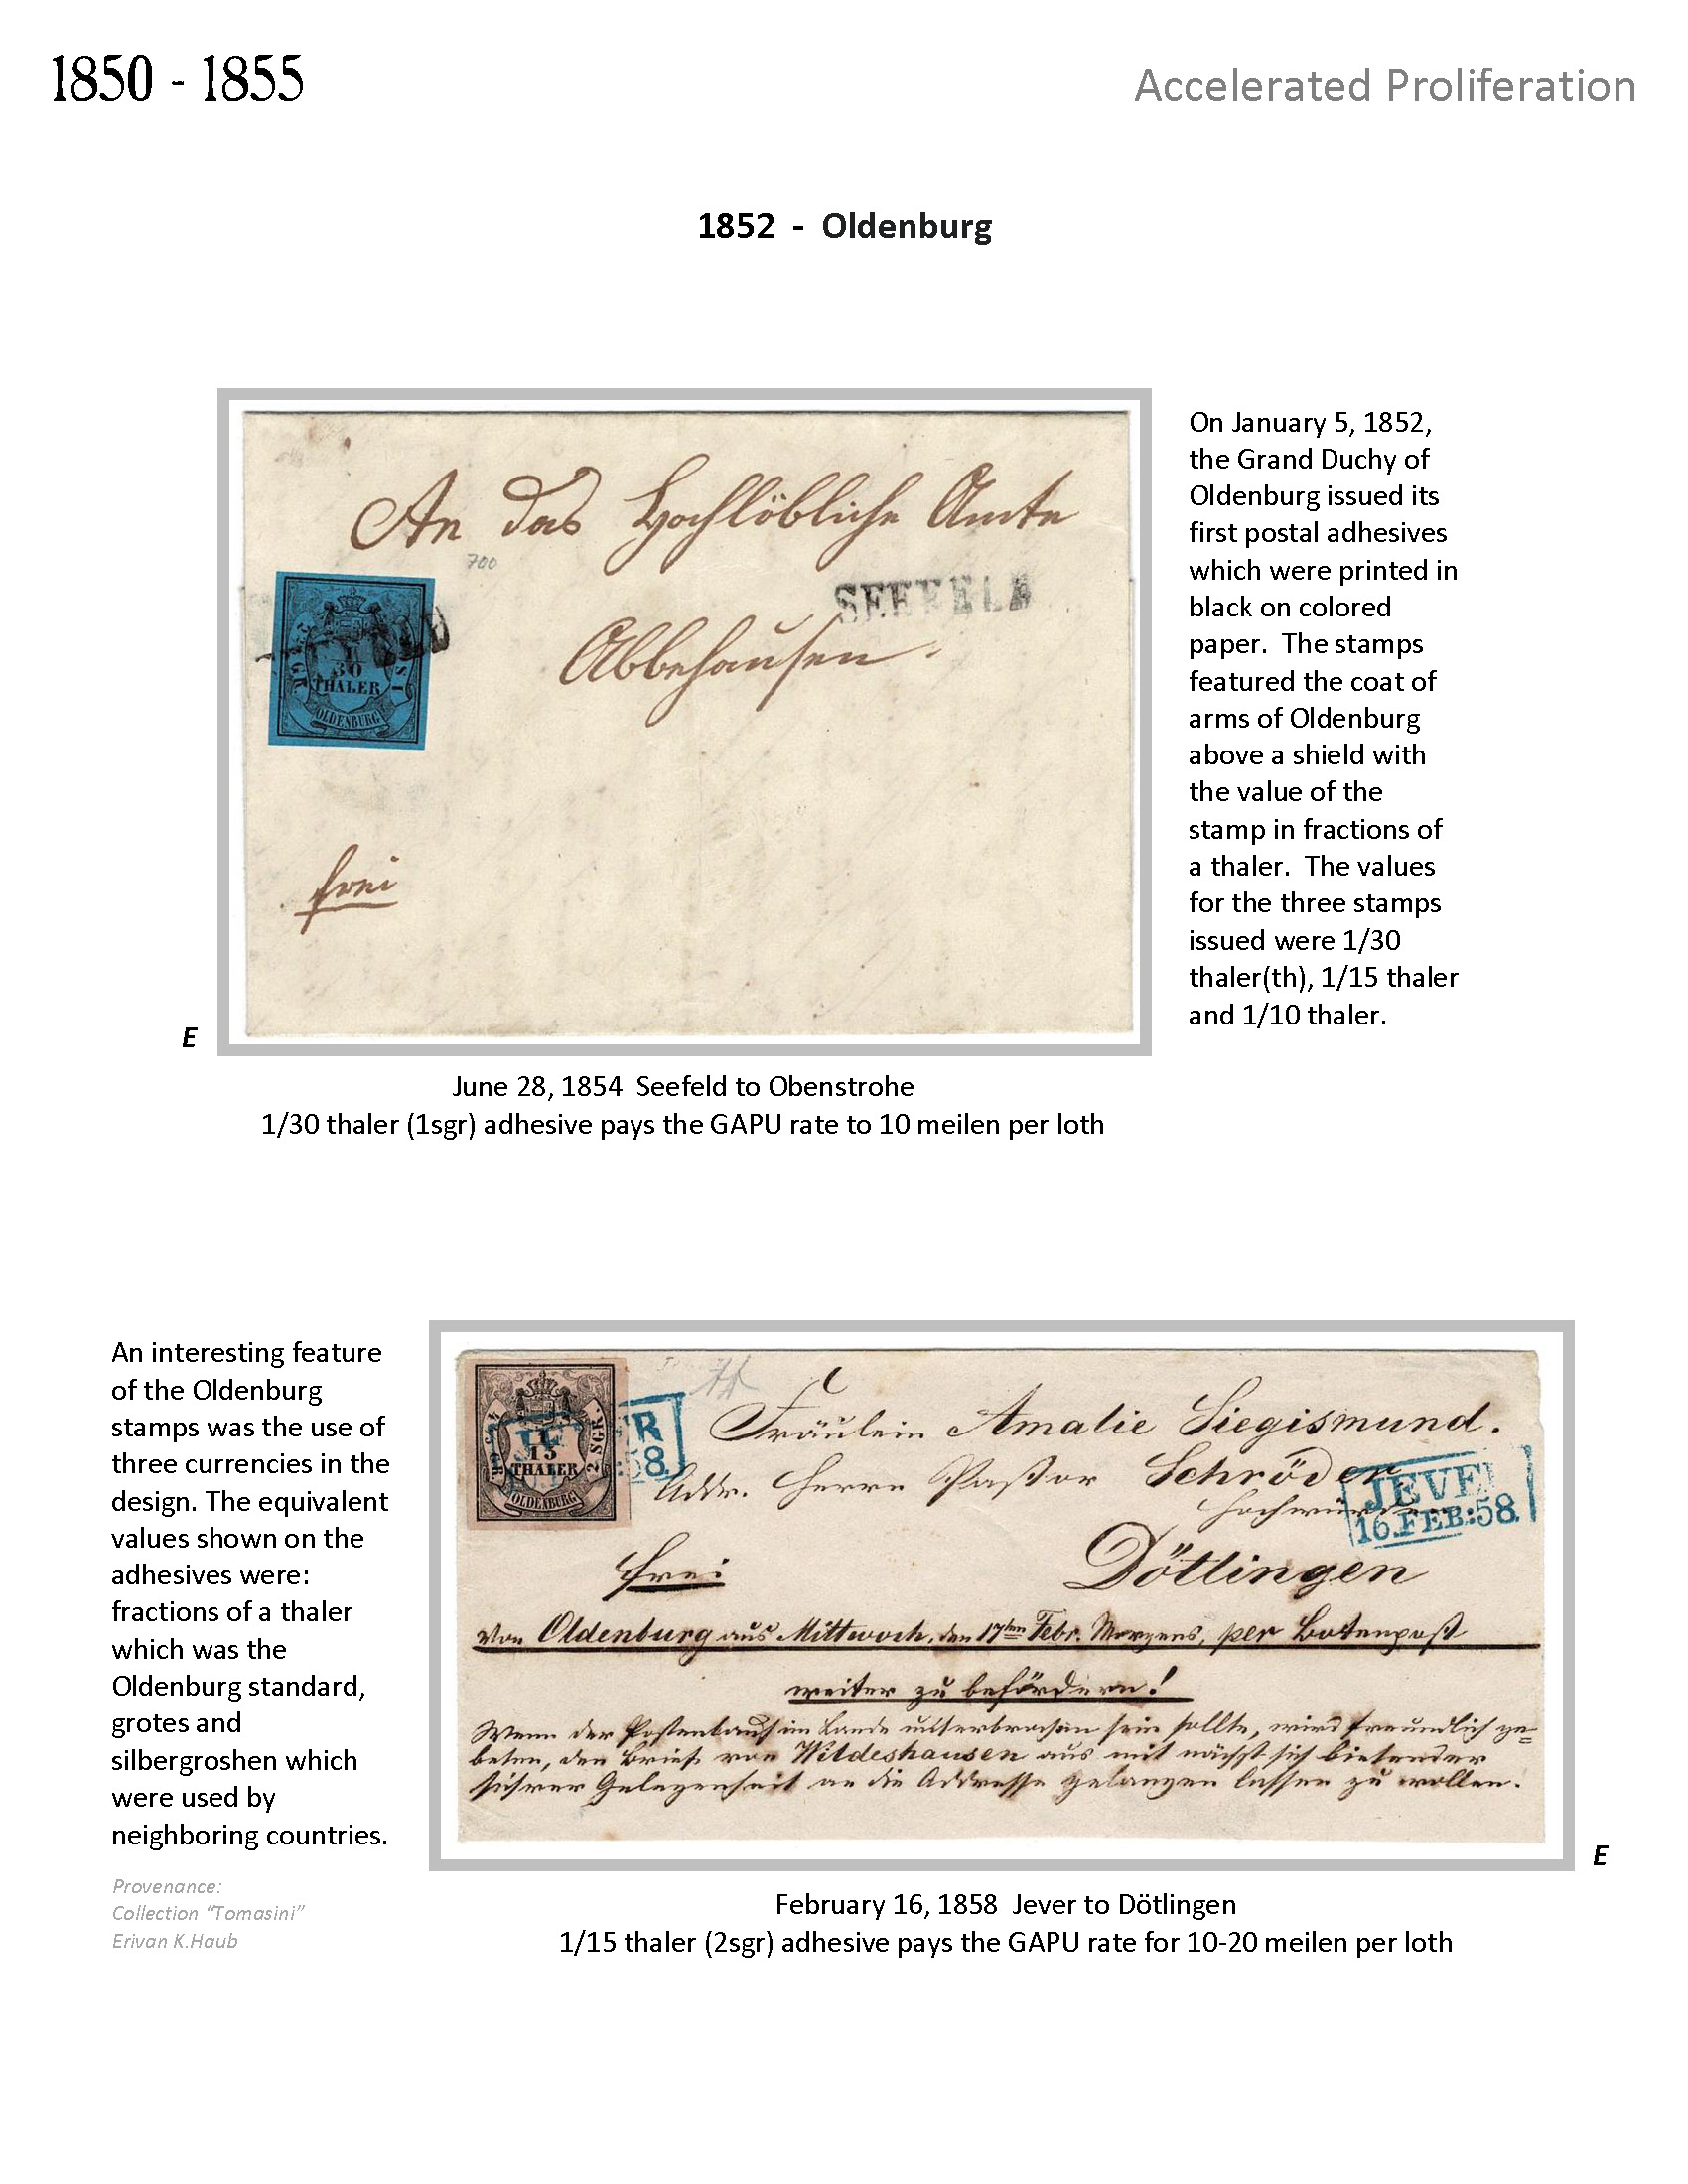 1850 - 1855
Accelerated Proliferation
1852 - Oldenburg
An das Hochlöbliche Amte
700
SEEFELD
Abbehausen.
30
THALER
OLDENBURG
frei
On January 5, 1852,
the Grand Duchy of
Oldenburg issued its
first postal adhesives
which were printed in
black on colored
paper. The stamps
featured the coat of
arms of Oldenburg
above a shield with
the value of the
stamp in fractions of
a thaler. The values
for the three stamps
issued were 1/30
thaler(th), 1/15 thaler
and 1/10 thaler.
E
June 28, 1854 Seefeld to Obenstrohe
1/30 thaler (1sgr) adhesive pays the GAPU rate to 10 meilen per loth
An interesting feature
of the Oldenburg
stamps was the use of
three currencies in the
design. The equivalent
values shown on the
adhesives were:
fractions of a thaler
which was the
Oldenburg standard,
grotes and
silbergroshen which
were used by
neighboring countries.
Provenance:
Collection “Tomasini”
Erivan K.Haub
15
THALER
2 SGR.
OLDENBURG
Fräulein Amalie Siegismund.
Addr. Herrn Pastor Schröder
JEVE
16.FEB:58.
Dötlingen
frei
von Oldenburg aus Mittwoch, den 17ten Febr. Morgens, per Botenpost
weiter zu befördern!
Wenn der Postenlauf im Lande unterbrochen sein sollte, wird freundlich ge=
beten, den Brief von Wildeshausen aus mit nächst sich bietender
sichrer Gelegenheit an die Addresse gelangen lassen zu wollen.
E
February 16, 1858 Jever to Dötlingen
1/15 thaler (2sgr) adhesive pays the GAPU rate for 10-20 meilen per loth